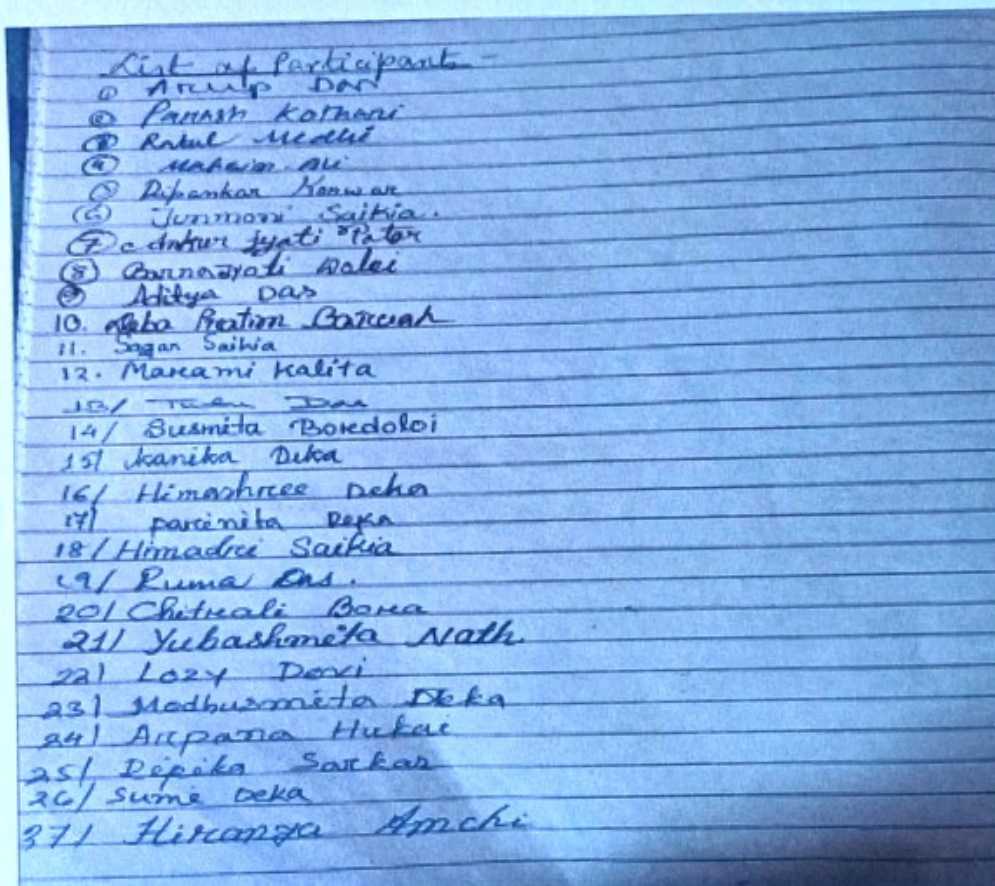 List of Participants -
① Arup Das
② Parash Kothari
③ Rakul Medhi
④ Mahaim Ali
⑤ Dipankar Konwar
⑥ Junmoni Saikia.
⑦ Ankur Jyoti Pator
⑧ Barnajyoti Dalei
⑨ Aditya Das
10. Deba Pratim Baruah
11. Sagar Saikia
12. Marami Kalita
13/ Das
14/ Susmita Bordoloi
15/ Kanika Deka
16/ Himashree Deka
17/ parinita Deka
18/ Himadri Saikia
19/ Ruma Das.
20/ Chitrali Bora
21/ Yubashmita Nath
22/ Lozy Devi
23/ Madhusmita Deka
24/ Arpana Hukai
25/ Dipika Sarkar
26/ Sumi Deka
37/ Hiranya Amchi